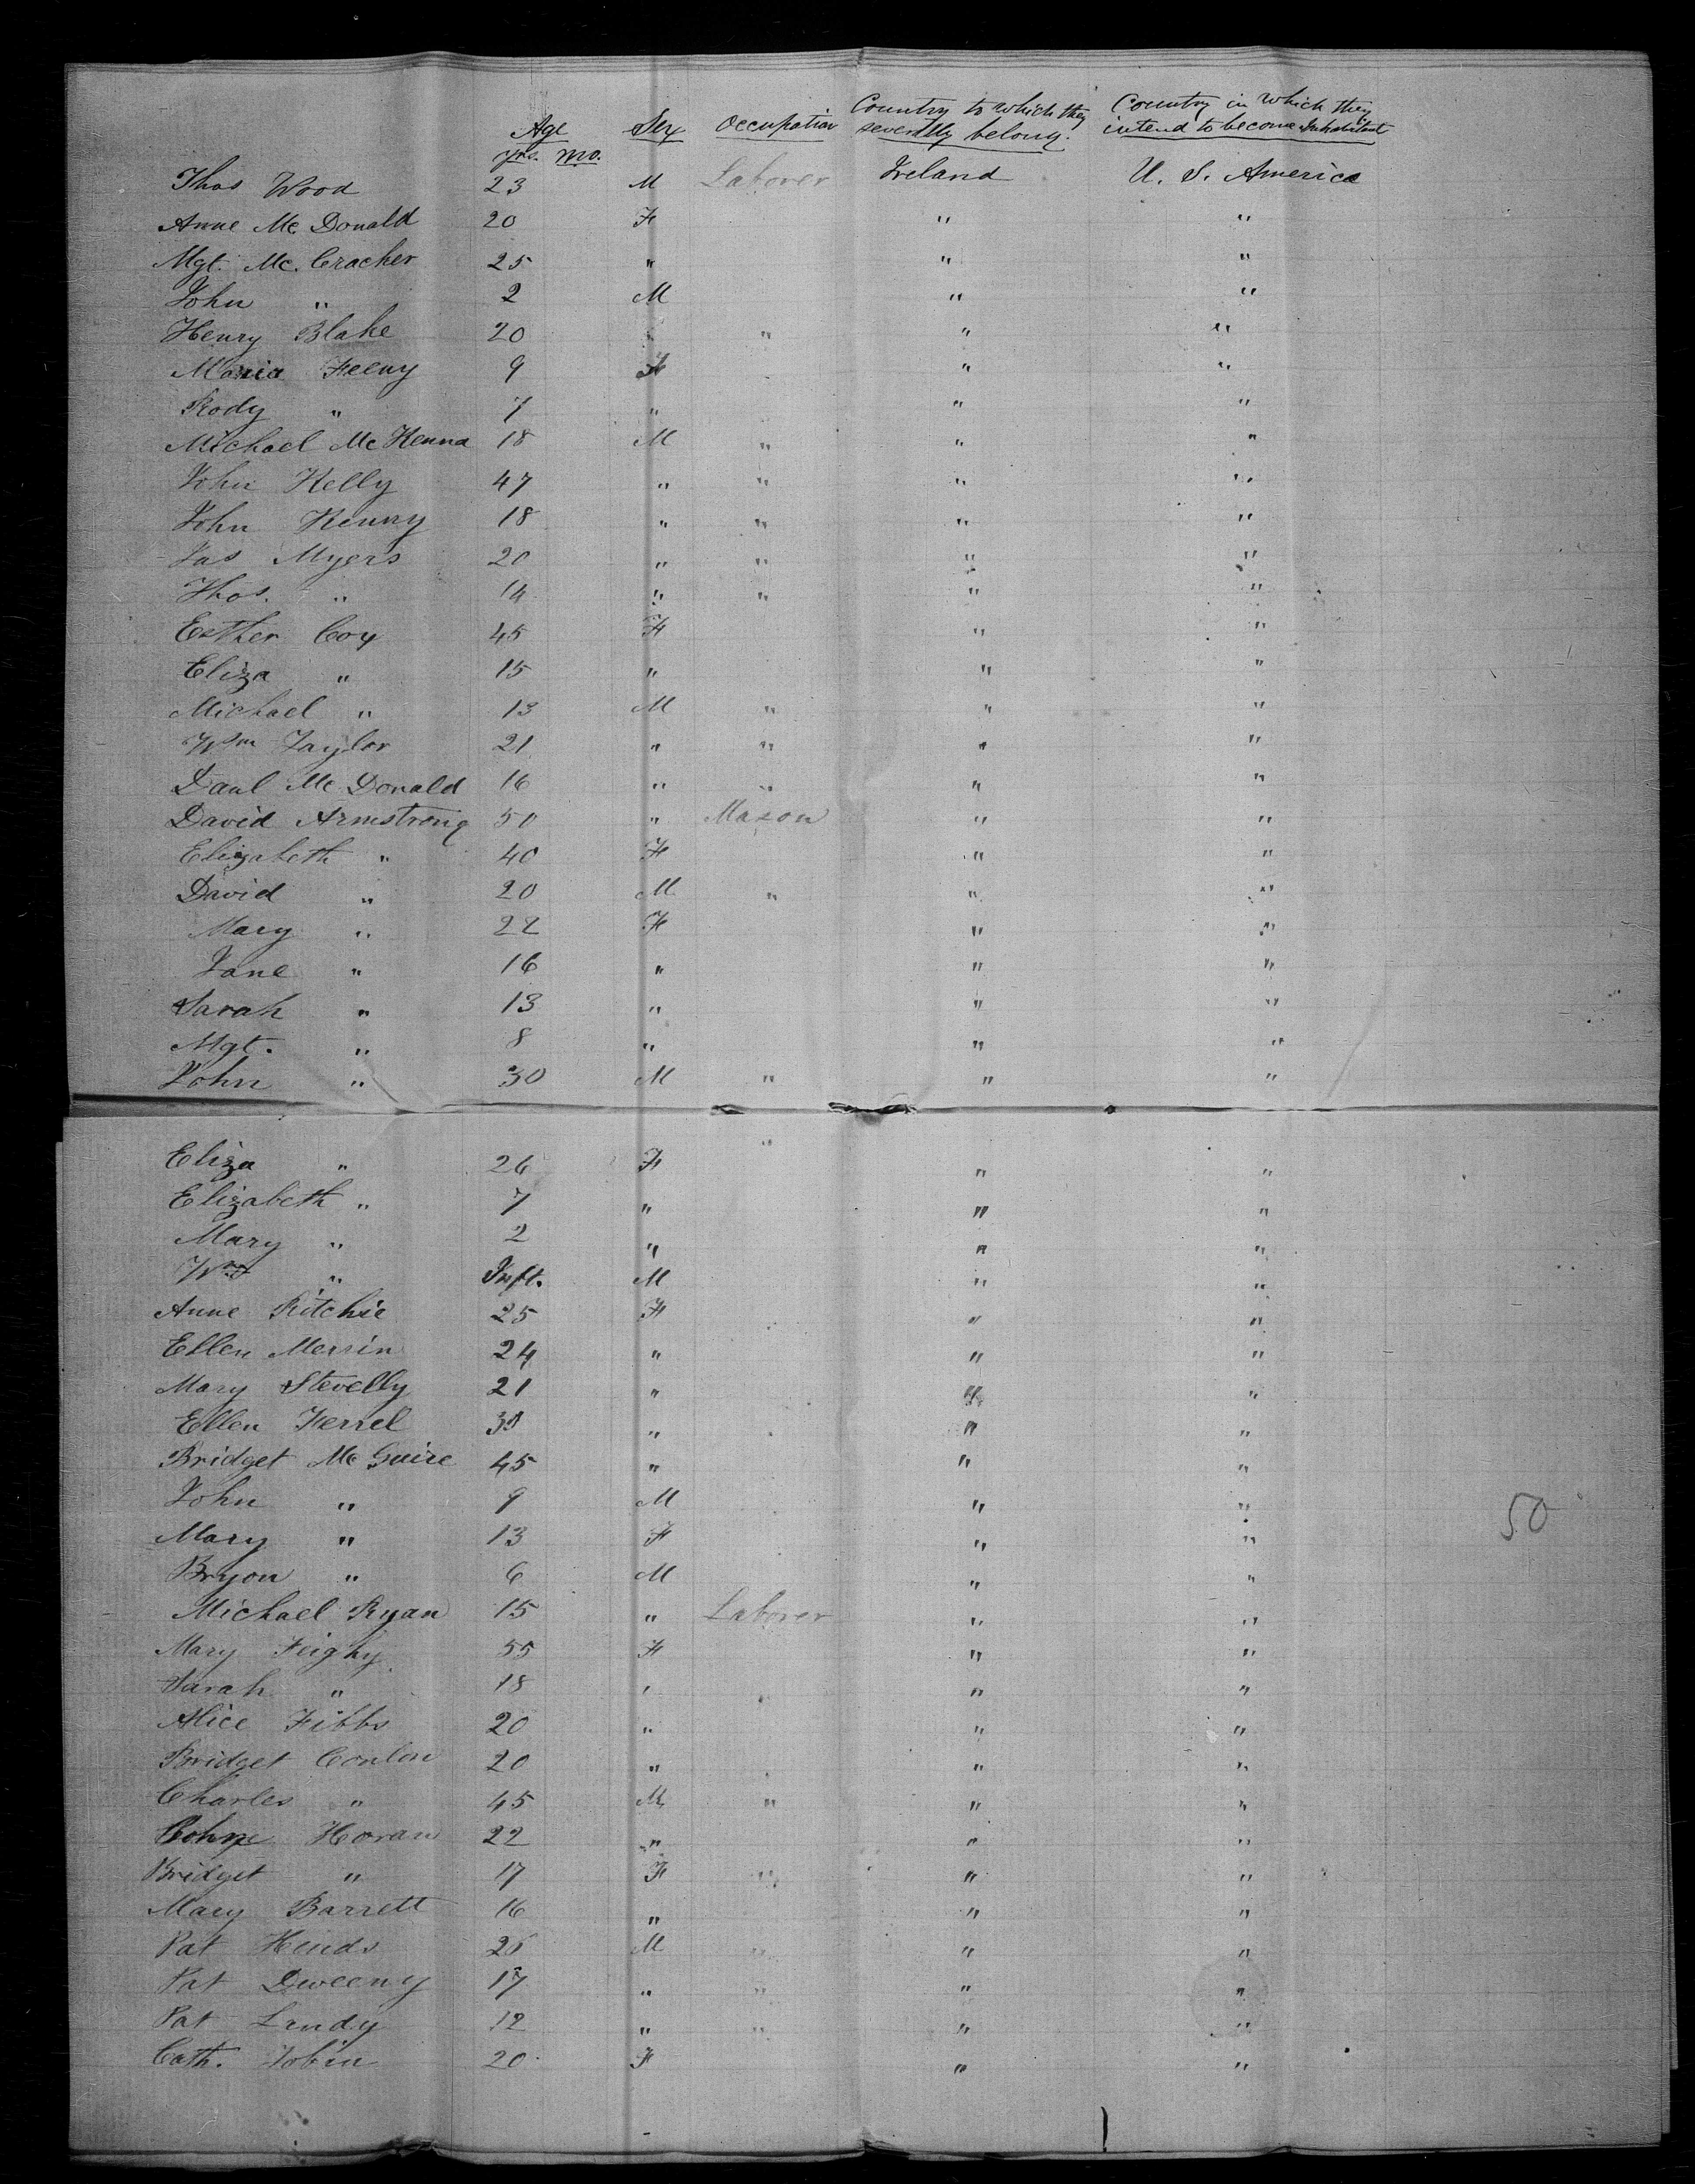 Age Sex Occupation Country to which they severally belong. Country in which they intend to become Inhabitant
yrs. mo.
Thos Wood 23 M Laborer Ireland U. S. America
Anne Mc Donald 20 F " "
Mgt. Mc. Cracher 25 " " "
John " 2 M " "
Henry Blake 20 " " "
Maria Feeny 9 F " "
Rody " 7 " " "
Michael Mc Kenna 18 M " " "
John Kelly 47 " " " "
John Kenny 18 " " " "
Jas Myers 20 " " " "
Thos. " 14 " " " "
Esther Coy 45 F " "
Eliza " 15 " " "
Michael " 13 M " " "
Wm Taylor 21 " " " "
Danl Mc Donald 16 " " " "
David Armstrong 50 " Mason " "
Elizabeth " 40 F " "
David " 20 M " " "
Mary " 22 F " "
Jane " 16 " " "
Sarah " 13 " " "
Mgt. " 8 " " "
John " 30 M " " "
Eliza " 26 F " " "
Elizabeth " 7 " " "
Mary " 2 " " "
Wm " Inft. M " "
Anne Ritchie 25 F " "
Ellen Merrin 24 " " "
Mary Stevelly 21 " " "
Ellen Ferrel " " "
Bridget Mc Guire 45 " " "
John " 9 M " "
Mary " 13 F " "
Bryon " 6 M " "
Michael Ryan 15 " Laborer " "
Mary Feighy 55 F " "
Sarah " 18 " " "
Alice Fibbs 20 " " "
Bridget Conlon 20 " " "
Charles " 45 M " " "
Horan 22 " " "
Bridget " 17 F " " "
Mary Barrett 16 " " "
Pat Hends 26 M " " "
Pat Dweeny 17 " " " "
Pat Landy 12 " " " "
Cath. Tobin 20 F " "
50